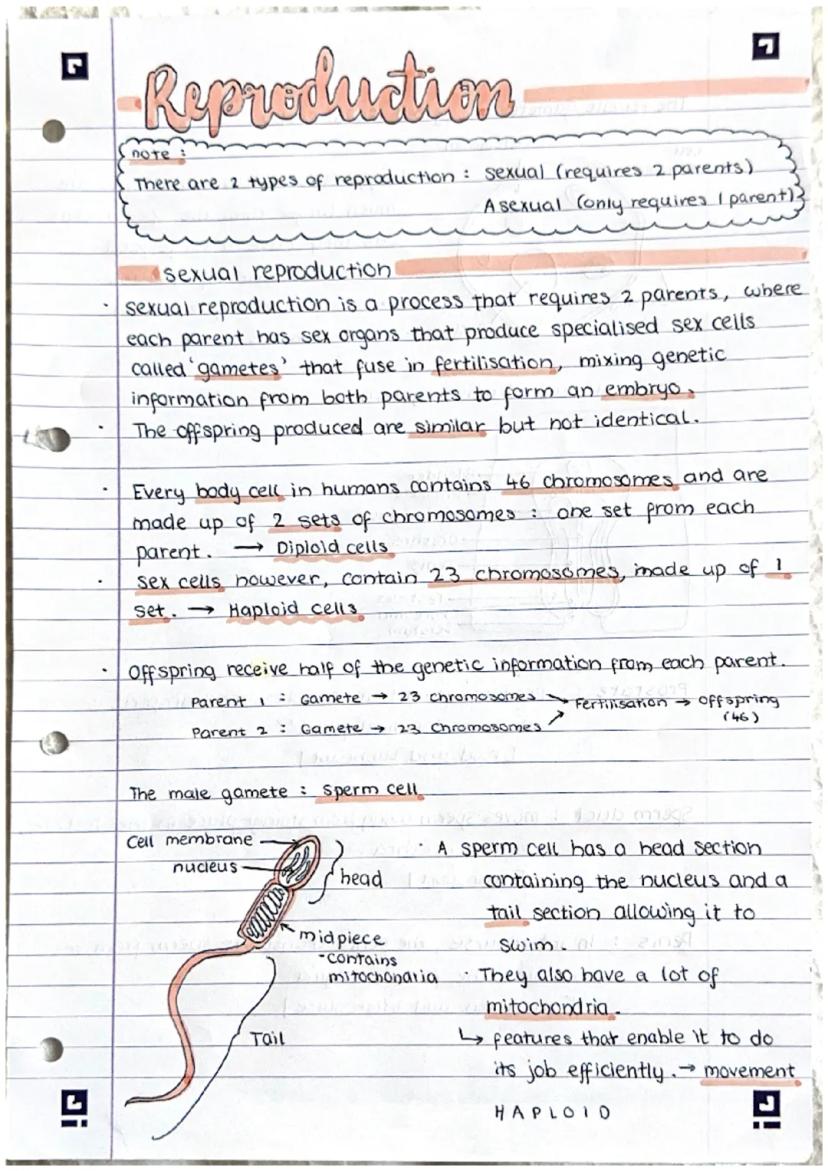 Reproduction
note :
There are 2 types of reproduction : sexual (requires 2 parents)
Asexual (only requires 1 parent)
sexual reproduction
· sexual reproduction is a process that requires 2 parents, where
each parent has sex organs that produce specialised sex cells
called 'gametes' that fuse in fertilisation, mixing genetic
information from both parents to form an embryo.
· The offspring produced are similar but not identical.
· Every body cell in humans contains 46 chromosomes and are
made up of 2 sets of chromosomes : one set from each
parent. → Diploid cells
· Sex cells however, contain 23 chromosomes, made up of 1
set. → Haploid cells.
· Offspring receive half of the genetic information from each parent.
Parent 1 : Gamete → 23 chromosomes ↘ Fertilisation → Offspring
Parent 2 : Gamete → 23 Chromosomes ↗ (46)
The male gamete : Sperm cell
Cell membrane
nucleus
head
midpiece
-contains
mitochondria
Tail
· A sperm cell has a head section
containing the nucleus and a
tail section allowing it to
swim.
· They also have a lot of
mitochondria.
↳ features that enable it to do
its job efficiently. → movement
HAPLOID